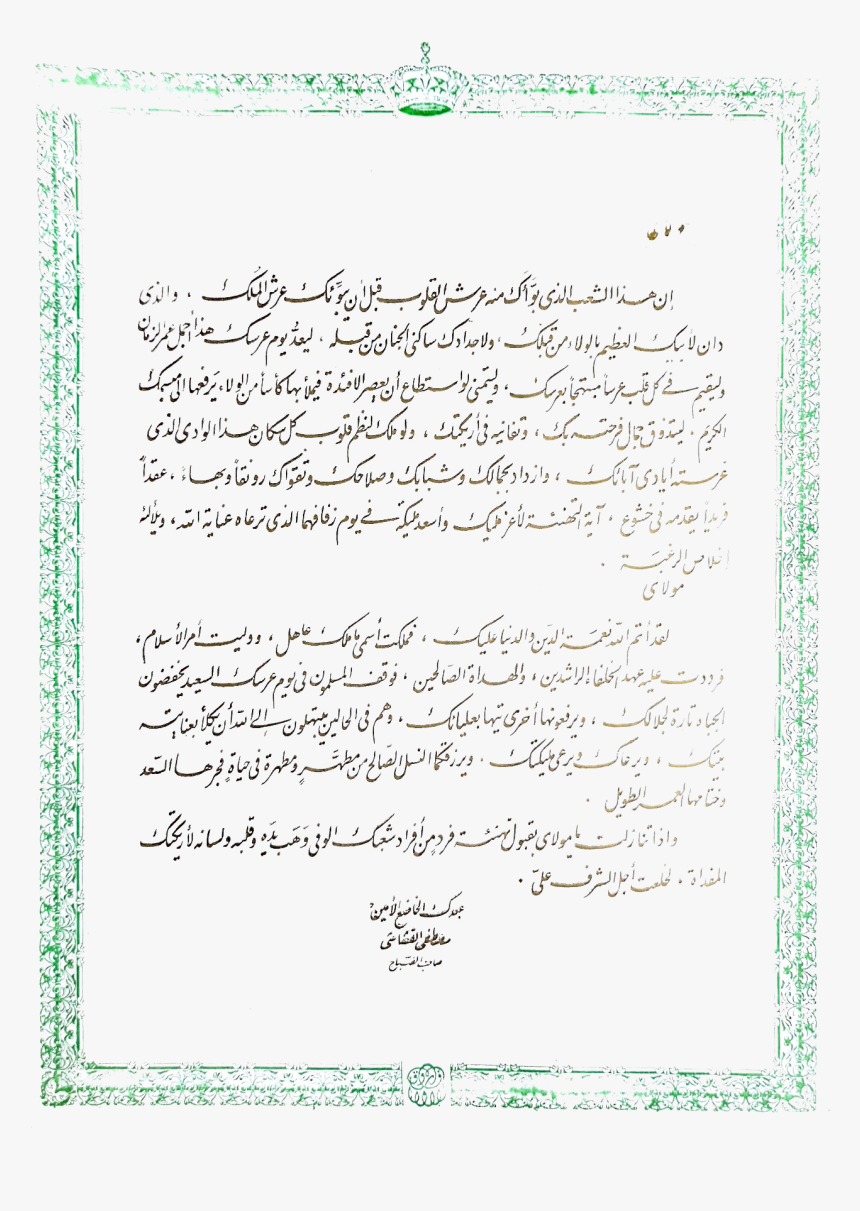 مولاى
إن هذا الشعب الذى بوَّأك منه عرش القلوب قبل أن يبوِّئك عرش المُلك ، والذى
دان لأبيك العظيم بالولاء من قبلك ، ولأجدادك ساكنى الجنان من قبله ، ليعدُّ يوم عرسك هذا أجمل عمر الزمان
وليقيم فى كل قلب عرساً مبتهجاً بعرسك ، وليتمنى لو استطاع أن يعصر الأفئدة فيملأ بها كأساً من الولاء يرفعها الى مسمك
الكريم . ليتذوق جمال فرحته بك ، وتفانيه فى أريكتك ، ولو ملك النظم قلوب كل سكان هذا الوادى الذى
غرسته أيادى آبائك ، وازداد بجمالك وشبابك وصلاحك وتقواك رونقاً وبهاءً ، عقداً
فريداً يقدمه فى خشوع ، آية التهنئة لأعز مليك وأسعد مليكة فى يوم زفافهما الذى ترعاه عناية الله ،
إخلاص الرغبة .
مولاى
لقد أتم الله نعمة الدين والدنيا عليك ، فملكت أسمى ما ملك عاهل ، ووليت أمر الأسلام ،
فرددت عليه عهد الخلفاء الراشدين ، والهداة الصالحين ، فوقف المسلمون فى يوم عرسك السعيد يخفضون
الجباه تارة لجلالك ، ويرفعونها أخرى تيها بعليائك ، وهم فى الحالين يبتهلون إلى الله أن يكلأ بعنايته
بيتك ، ويرعاك ويرعى مليكتك . ويرزقكما النسل الصالح من مطهَّرٍ ومطهرة فى حياةٍ فجرها السّعد
وختامها العمر الطويل .
واذا تنازلت يا مولاى بقبول تهنئة فردٍ من أفراد شعبك الوفى وَهَب يدَه وقلبه ولسانه لأريكتك
المفداة ، لخلعت أجل الشرف علىّ .
عبدك الخاضع الأمين
مصطفى القشاشى
صاحب الصباح
فاروق